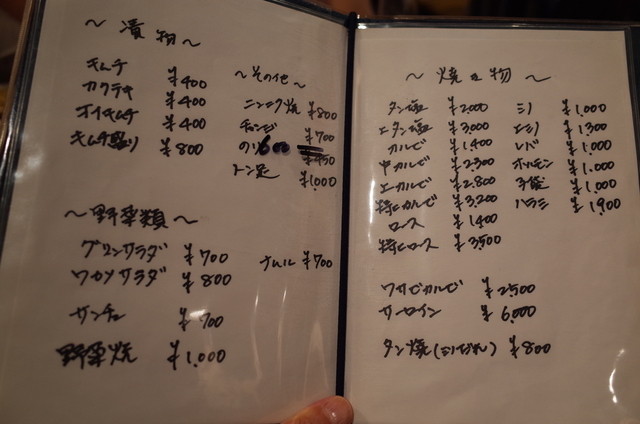 ～漬物～
キムチ ¥400
カクテキ ¥400
オイキムチ ¥400
キムチ盛り ¥800
～その他～
ニンニク焼 ¥800
チャンジ ¥700
のり 600 ¥450
トン足 ¥1,000
～野菜類～
グリンサラダ ¥700
ワカメサラダ ¥800
サンチュ ¥700
野菜焼 ¥1,000
ナムル ¥700
～焼き物～
タン塩 ¥2,000
上タン塩 ¥3,000
カルビ ¥1,400
中カルビ ¥2,300
上カルビ ¥2,800
特上カルビ ¥3,200
ロース ¥1,400
特上ロース ¥3,500
ミノ ¥1,000
上ミノ ¥1,300
レバー ¥1,000
ホルモン ¥1,000
子袋 ¥1,000
ハラミ ¥1,900
ワサビカルビ ¥2,500
サーロイン ¥6,000
タン焼 ¥800